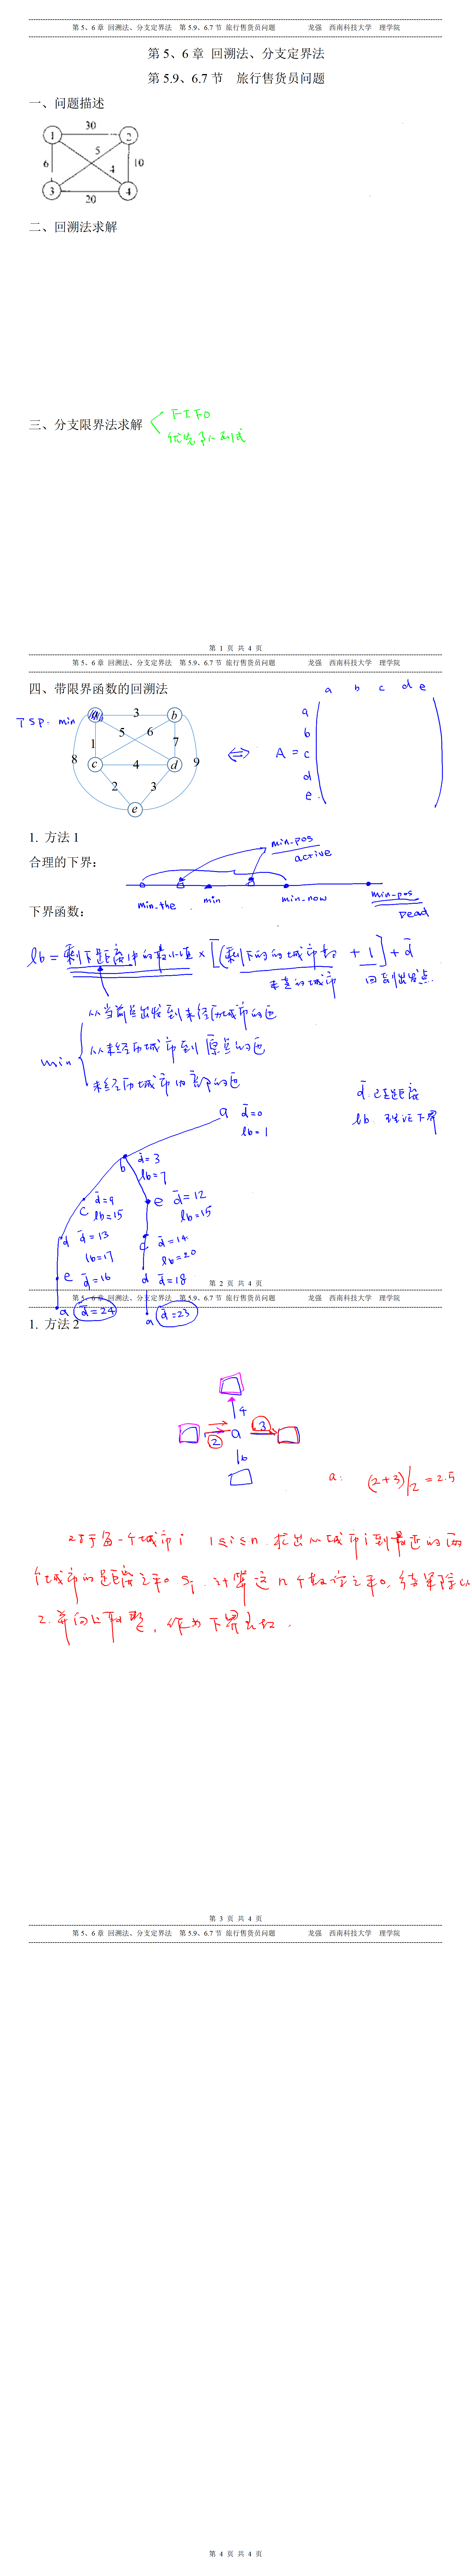 第 5、6 章 回溯法、分支定界法 第 5.9、6.7 节 旅行售货员问题 龙强 西南科技大学 理学院
第 5、6 章 回溯法、分支定界法
第 5.9、6.7 节 旅行售货员问题
一、问题描述
1 30 2
5
6 4 10
3 20 4
二、回溯法求解
三、分支限界法求解
FIFO
优先队列式
第 1 页 共 4 页
第 5、6 章 回溯法、分支定界法 第 5.9、6.7 节 旅行售货员问题 龙强 西南科技大学 理学院
四、带限界函数的回溯法
TSP. min
a 3 b
5 6
1 7
8 c 4 d 9
2 3
e
⇔ A =
a b c d e
a
b
c
d
e
1. 方法 1
合理的下界:
min-pos
active
min-the min min-now min-pos
Dead
下界函数:
lb = 剩下距离中的最小值 × [(剩下的的城市数 + 1] + d̄
未走的城市 回到出发点.
min
从当前点出发到未经历城市的边
从未经历城市到原点的边
未经历城市内部的边
d̄: 已走距离
lb.
a d̄=0
lb=1
b d̄=3
lb=7
c d̄=9
lb=15
e d̄=12
lb=15
d d̄=13
lb=17
c d̄=14
lb=20
e d̄=16
d d̄=18
a d̄=24
a d̄=23
第 2 页 共 4 页
第 5、6 章 回溯法、分支定界法 第 5.9、6.7 节 旅行售货员问题 龙强 西南科技大学 理学院
1. 方法 2
4
2 a 3
6
a: (2+3)/2 = 2.5
对于每一个城市 i 1≤i≤n. 求出从城市 i 到最近的两
个城市的距离之和 Si. 计算这 n 个数字之和. 结果除以
2. 并向上取整, 作为下界函数.
第 3 页 共 4 页
第 5、6 章 回溯法、分支定界法 第 5.9、6.7 节 旅行售货员问题 龙强 西南科技大学 理学院
第 4 页 共 4 页